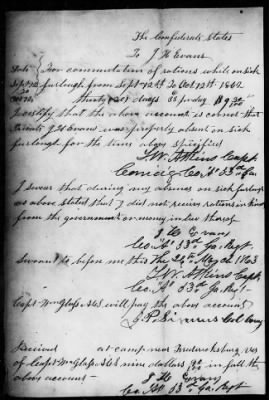 The Confederate States
To J H Evans
For commutation of rations while on sick
furlough from Sept 12th To Oct 12th 1862
thirty days
I certify that the above account is correct that
Private J H Evans was properly absent on sick
furlough for the time above specified
T. W. Atkins Capt
Comdg Co. A 53rd Ga
I swear that during my absence on sick furlough
as above stated that I did not receive rations in kind
from the government or money in lieu thereof
J H Evans
Co. A 53rd Ga. Regt.
Sworn to before me this The 24th May 1863
T. W. Atkins Capt
Co. A 53rd Ga. Regt.
Capt Wm Glass A Q M will pay the above account
J. P. Simms Col Comg
Received at camp near Fredericksburg Va
of Capt Wm Glass A Q M nine dollars in full the
above account
J H Evans
Co. A 53rd Ga Regt